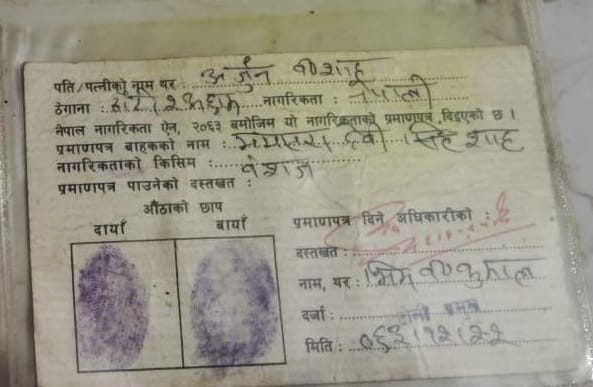 पति/पत्नीको नाम थर : अर्जुन वि शाह
ठेगाना : नागरिकता : नेपाली
नेपाल नागरिकता ऐन, २०६३ बमोजिम यो नागरिकताको प्रमाणपत्र दिइएको छ ।
प्रमाणपत्र बाहकको नाम : देवी सिंह शाह
नागरिकताको किसिम : वंशज
प्रमाणपत्र पाउनेको दस्तखत :
औंठाको छाप
दायाँ बायाँ
प्रमाणपत्र दिने अधिकारीको :
दस्तखत :
नाम, थर : भिम व कुमाल
दर्जा :
मिति : ०६३।१२।२२